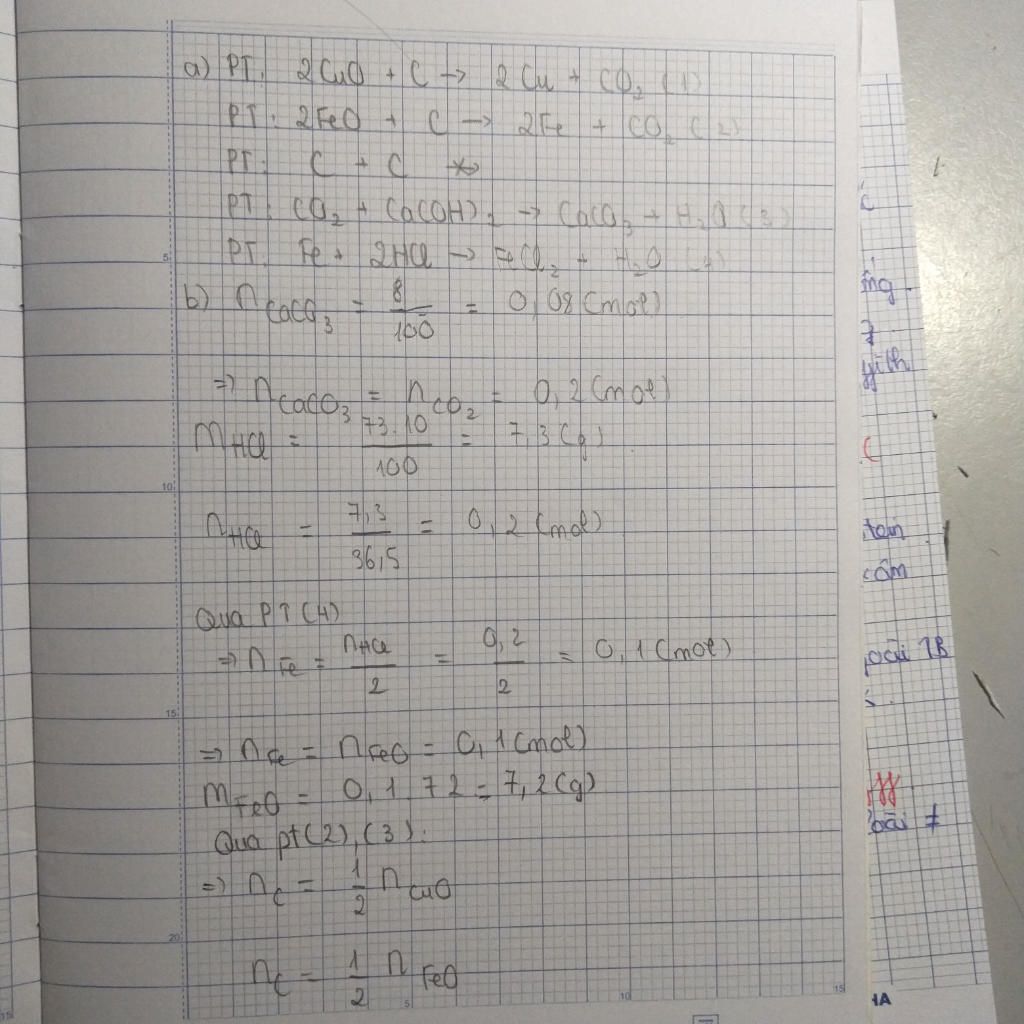 a) PT: 2CuO + C → 2Cu + CO₂ (1)
PT: 2FeO + C → 2Fe + CO₂ (2)
PT: C + C ↛
PT: CO₂ + Ca(OH)₂ → CaCO₃ + H₂O (3)
PT: Fe + 2HCl → FeCl₂ + H₂O (4)
b) n CaCO₃ = 8/100 = 0,08 (mol)
=> n CaCO₃ = n CO₂ = 0,2 (mol)
m HCl = 73.10/100 = 7,3 (g)
n HCl = 7,3/36,5 = 0,2 (mol)
Qua PT (4)
=> n Fe = n HCl/2 = 0,2/2 = 0,1 (mol)
=> n Fe = n FeO = 0,1 (mol)
m FeO = 0,1.72 = 7,2 (g)
Qua pt (2), (3):
=> n C = 1/2 n CuO
n C = 1/2 n FeO
5
10
15
20
5
10
15
15
HA